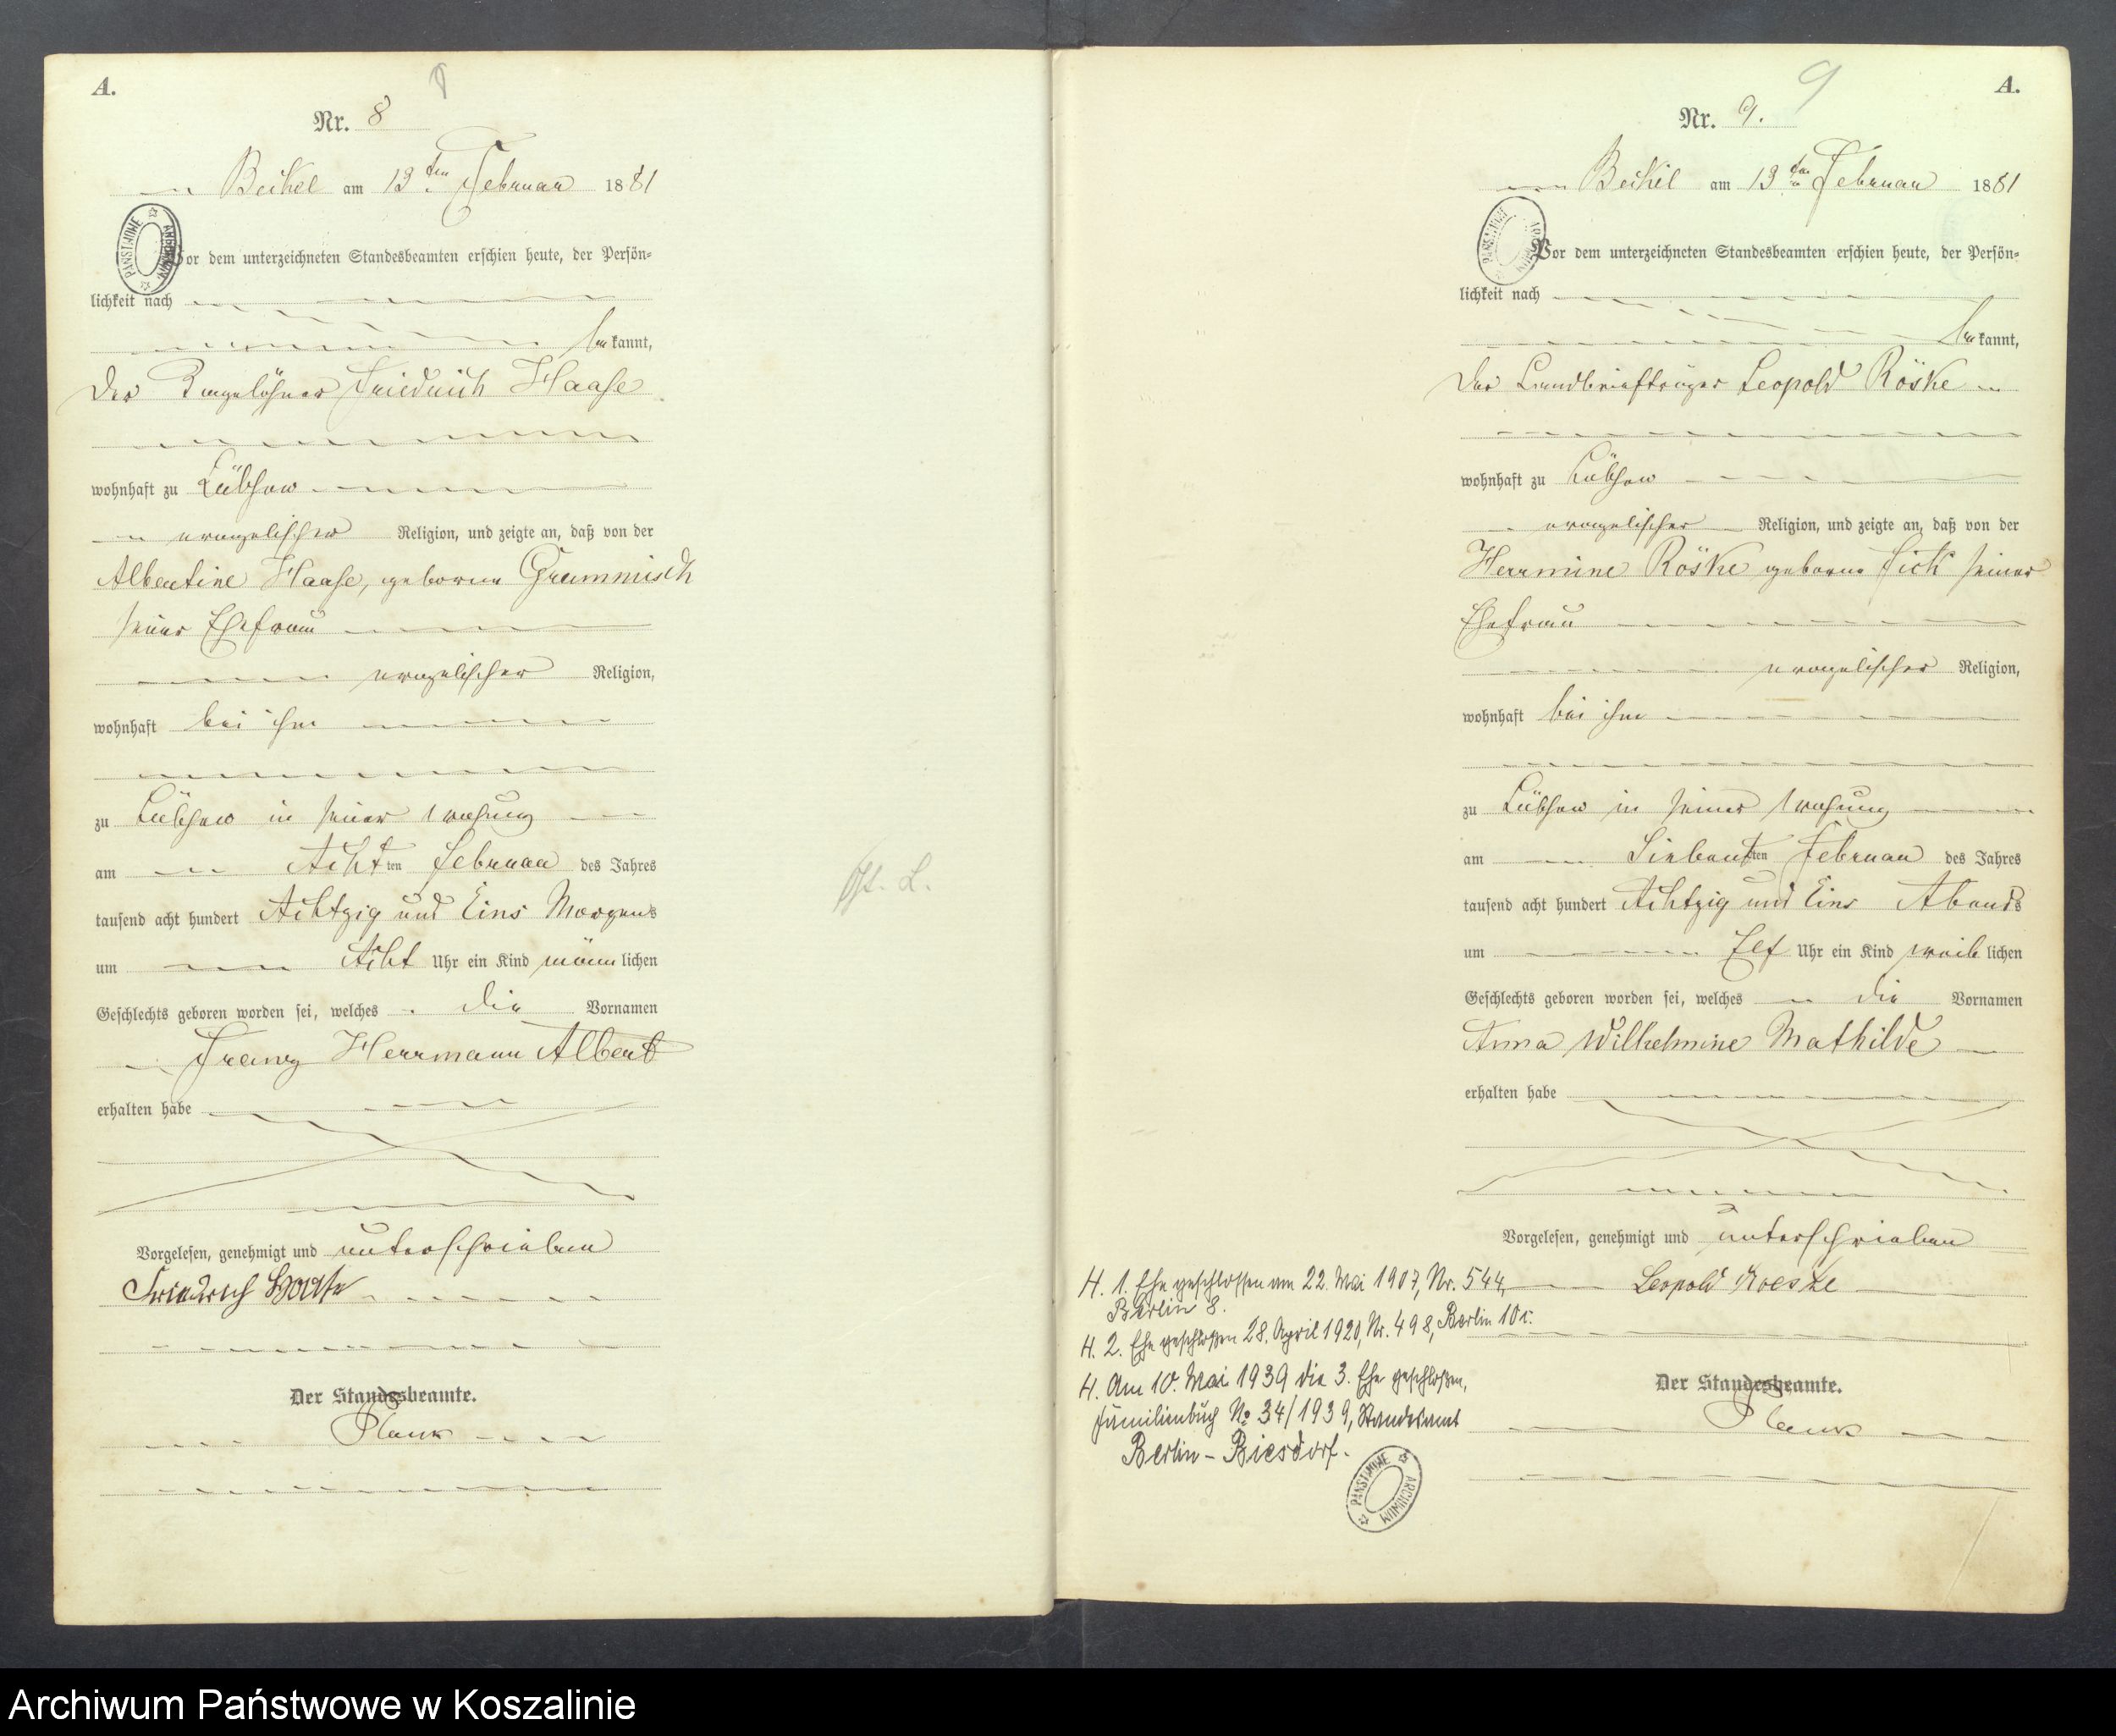 A.
8
Nr. 8
Beikel am 13ten Februar 1881
PAŃSTWOWE ARCHIWUM
Vor dem unterzeichneten Standesbeamten erschien heute, der Persön-
lichkeit nach
bekannt,
Der Tagelöhner Friedrich Haase
wohnhaft zu Lübsow
evangelischer Religion, und zeigte an, daß von der
Albertine Haase, geborne Grammisch
seiner Ehefrau
evangelischer Religion,
wohnhaft bei ihm
zu Lübsow in seiner Wohung
am Achtten Februar des Jahres
tausend acht hundert Achtzig und Eins Morgens
um Acht Uhr ein Kind männlichen
Geschlechts geboren worden sei, welches die Vornamen
Franz Herrmann Albert
erhalten habe
Vorgelesen, genehmigt und unterschrieben
Friedrich Haase
Der Standesbeamte.
Plank
9
A.
Nr. 9.
Beikel am 13ten Februar 1881
PAŃSTWOWE ARCHIWUM
Vor dem unterzeichneten Standesbeamten erschien heute, der Persön-
lichkeit nach
bekannt,
Der Landbriefträger Leopold Röske
wohnhaft zu Lübsow
evangelischer Religion, und zeigte an, daß von der
Herrmine Röske geborne Fick seiner
Ehefrau
evangelischer Religion,
wohnhaft bei ihm
zu Lübsow in seiner Wohung
am Siebentten Februar des Jahres
tausend acht hundert Achtzig und Eins Abends
um Elf Uhr ein Kind weiblichen
Geschlechts geboren worden sei, welches die Vornamen
Anna Wilhelmine Mathilde
erhalten habe
Vorgelesen, genehmigt und unterschrieben
Leopold Roeske
Der Standesbeamte.
Plank
H. 1. Ehe geschlossen am 22. Mai 1907, Nr. 544,
Berlin 8.
H. 2. Ehe geschloßen 28. April 1920, Nr. 498, Berlin 10c.
H. Am 10. Mai 1939 die 3. Ehe geschloßen,
Familienbuch No 34/1939, Standesamt
Berlin-Biesdorf.
PAŃSTWOWE ARCHIWUM
Archiwum Państwowe w Koszalinie